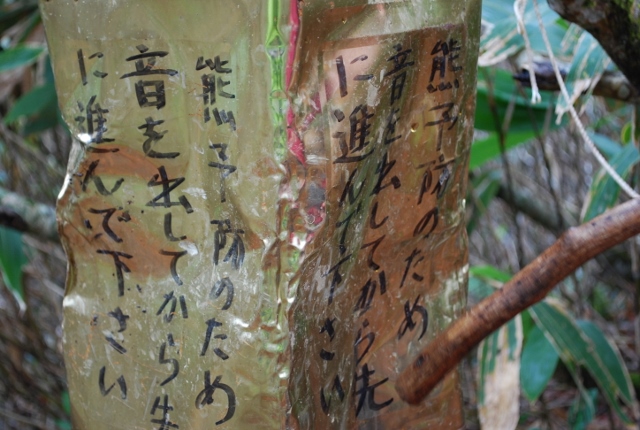 熊予防のため
音を出してから先
に進んで下さい
熊予防のため
音を出してから先
に進んで下さい